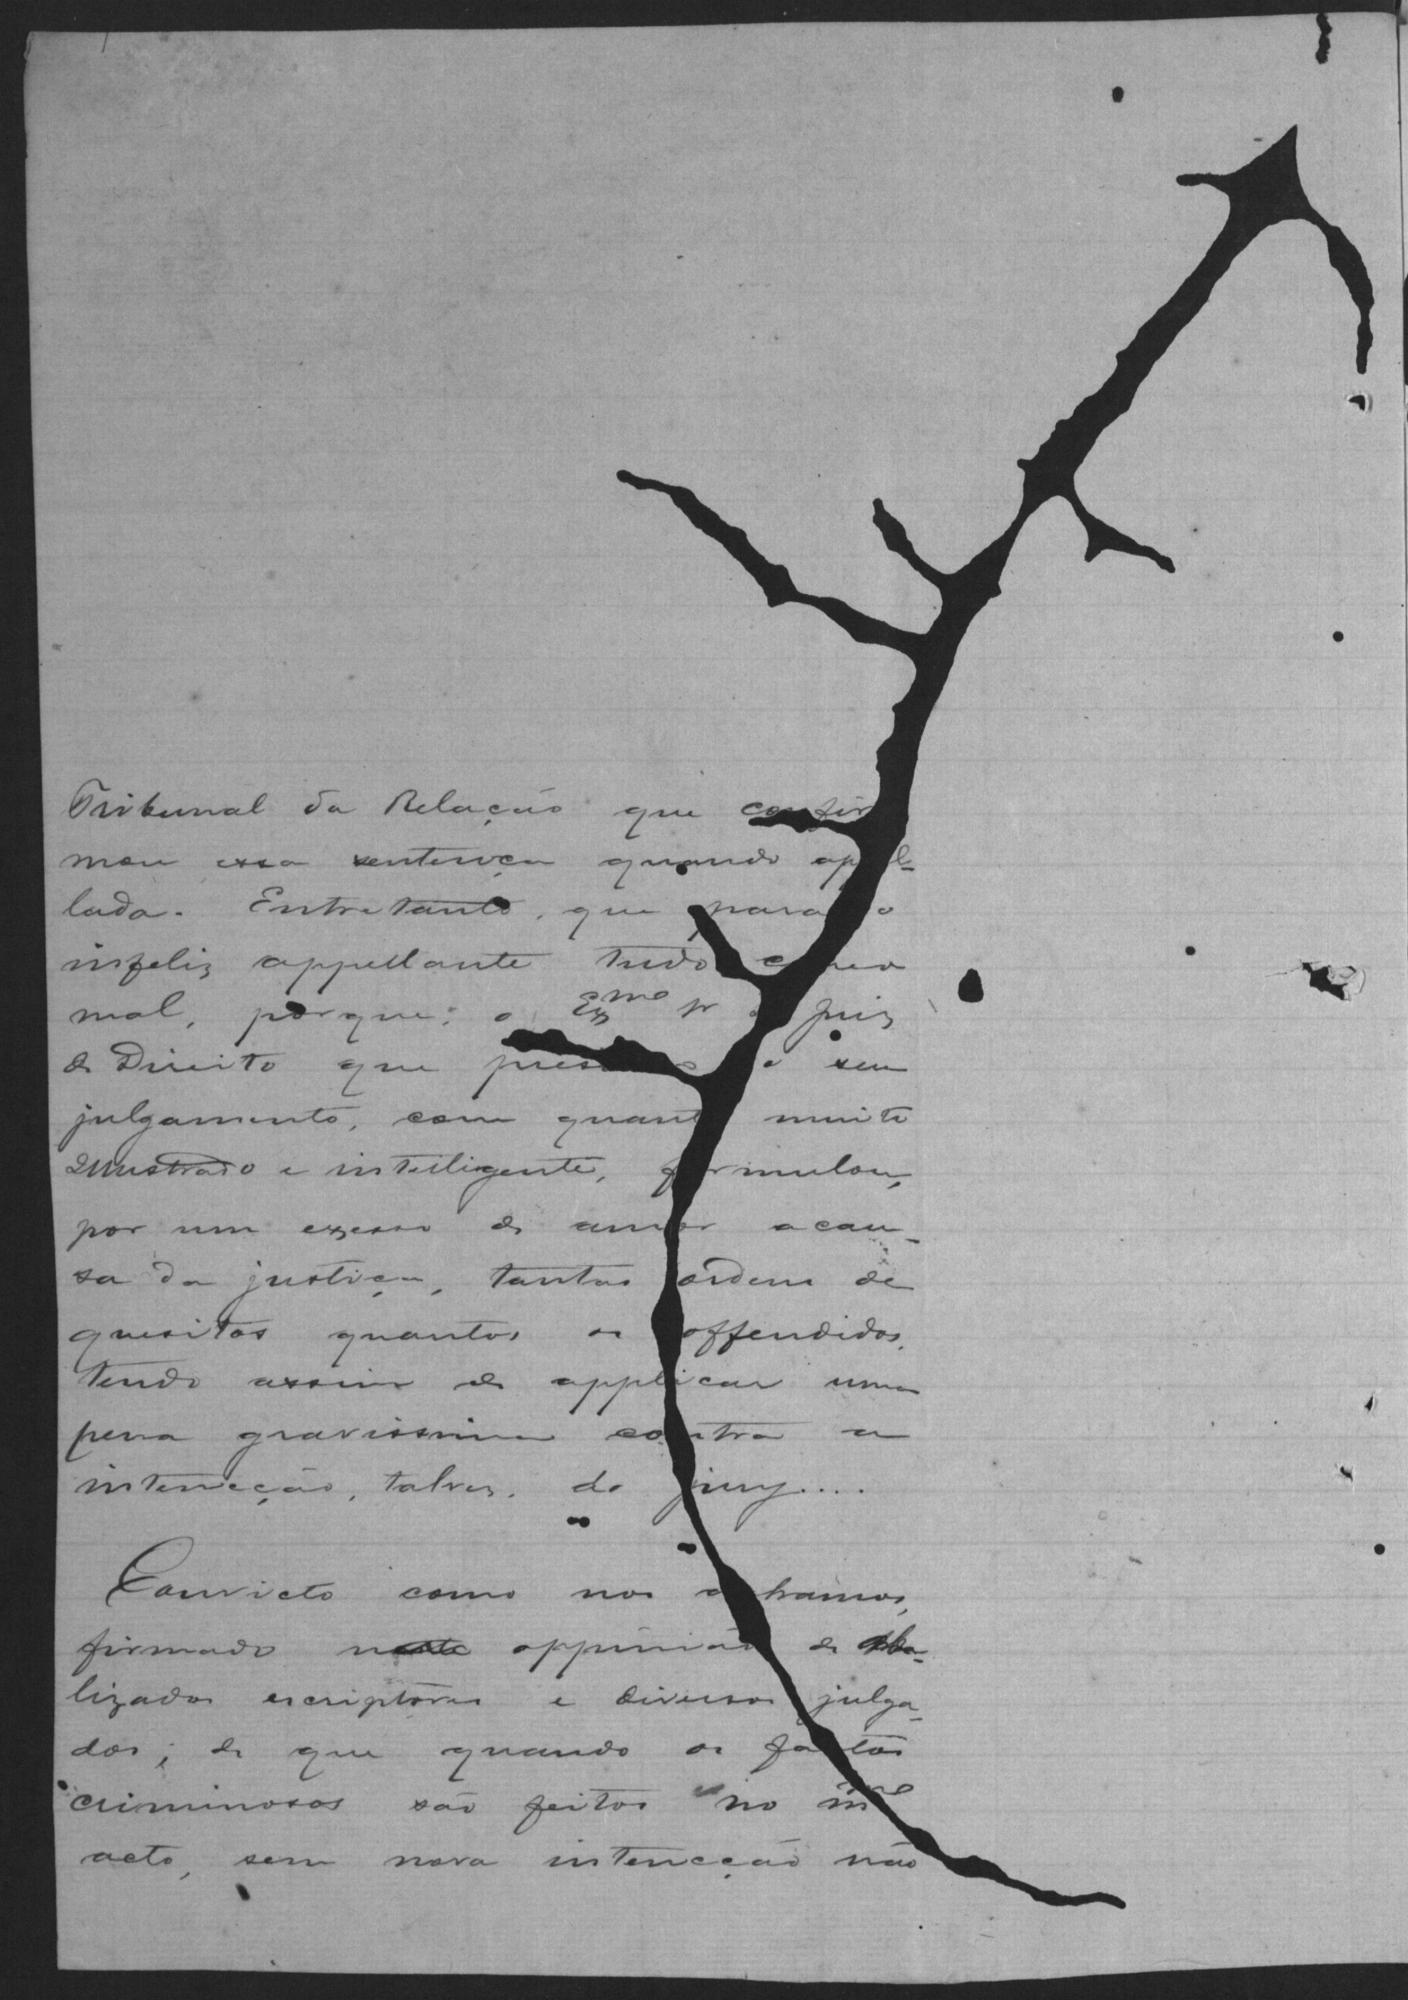 Tribunal da Relação que confir
mou essa sentença quando apel-
lada. Entretanto, que para o
infeliz appellante tudo correo
mal, porque: o Exmo Sr Juiz
de Direito que presidio o seu
julgamento, com quanto muito
illustrado e intelligente, formulou,
por um excesso de amor a cau-
sa da justiça, tantas ordens de
quesitos quantos os offendidos,
tendo assim de applicar uma
pena gravissima contra a
intencção, talvez, do jury....
Convicto como nos achamos,
firmado nesta oppinião de aba-
lizados escriptores e diversos julga-
dos; de que quando os factos
criminosos são feitos no mmo
acto, sem nova intencção não